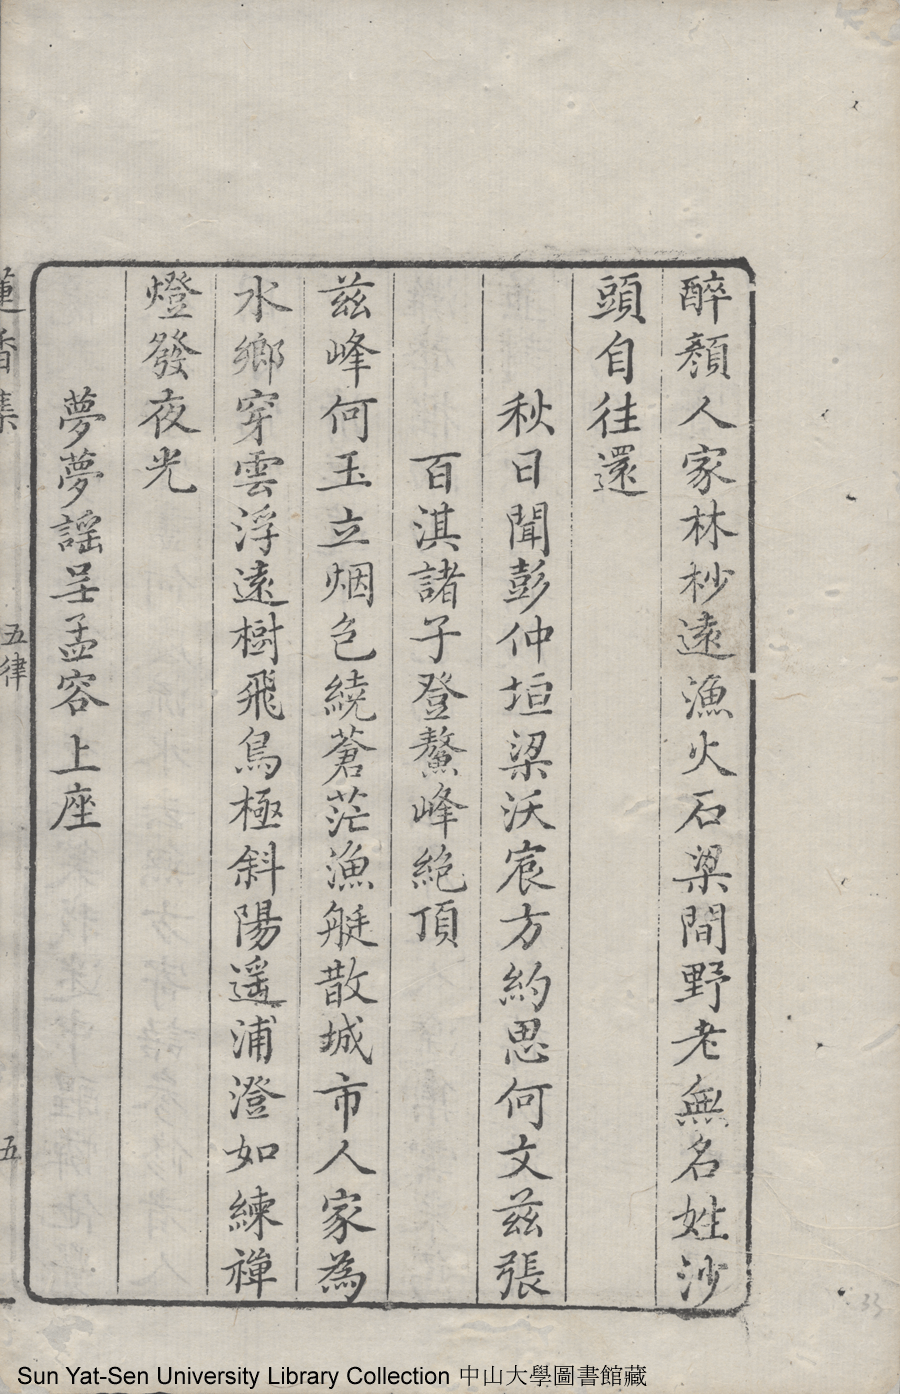 醉顏人家林杪遠漁火石梁間野老無名姓沙
頭自往還
秋日聞彭仲垣梁沃宸方約思何文兹張
百淇諸子登鰲峰絶頂
兹峰何玉立烟色繞蒼茫漁艇散城市人家為
水鄉穿雲浮遠樹飛鳥極斜陽遥浦澄如練禪
燈發夜光
夢夢謡呈孟容上座
蓮香集
五律
五
Sun Yat-Sen University Library Collection 中山大學圖書館藏